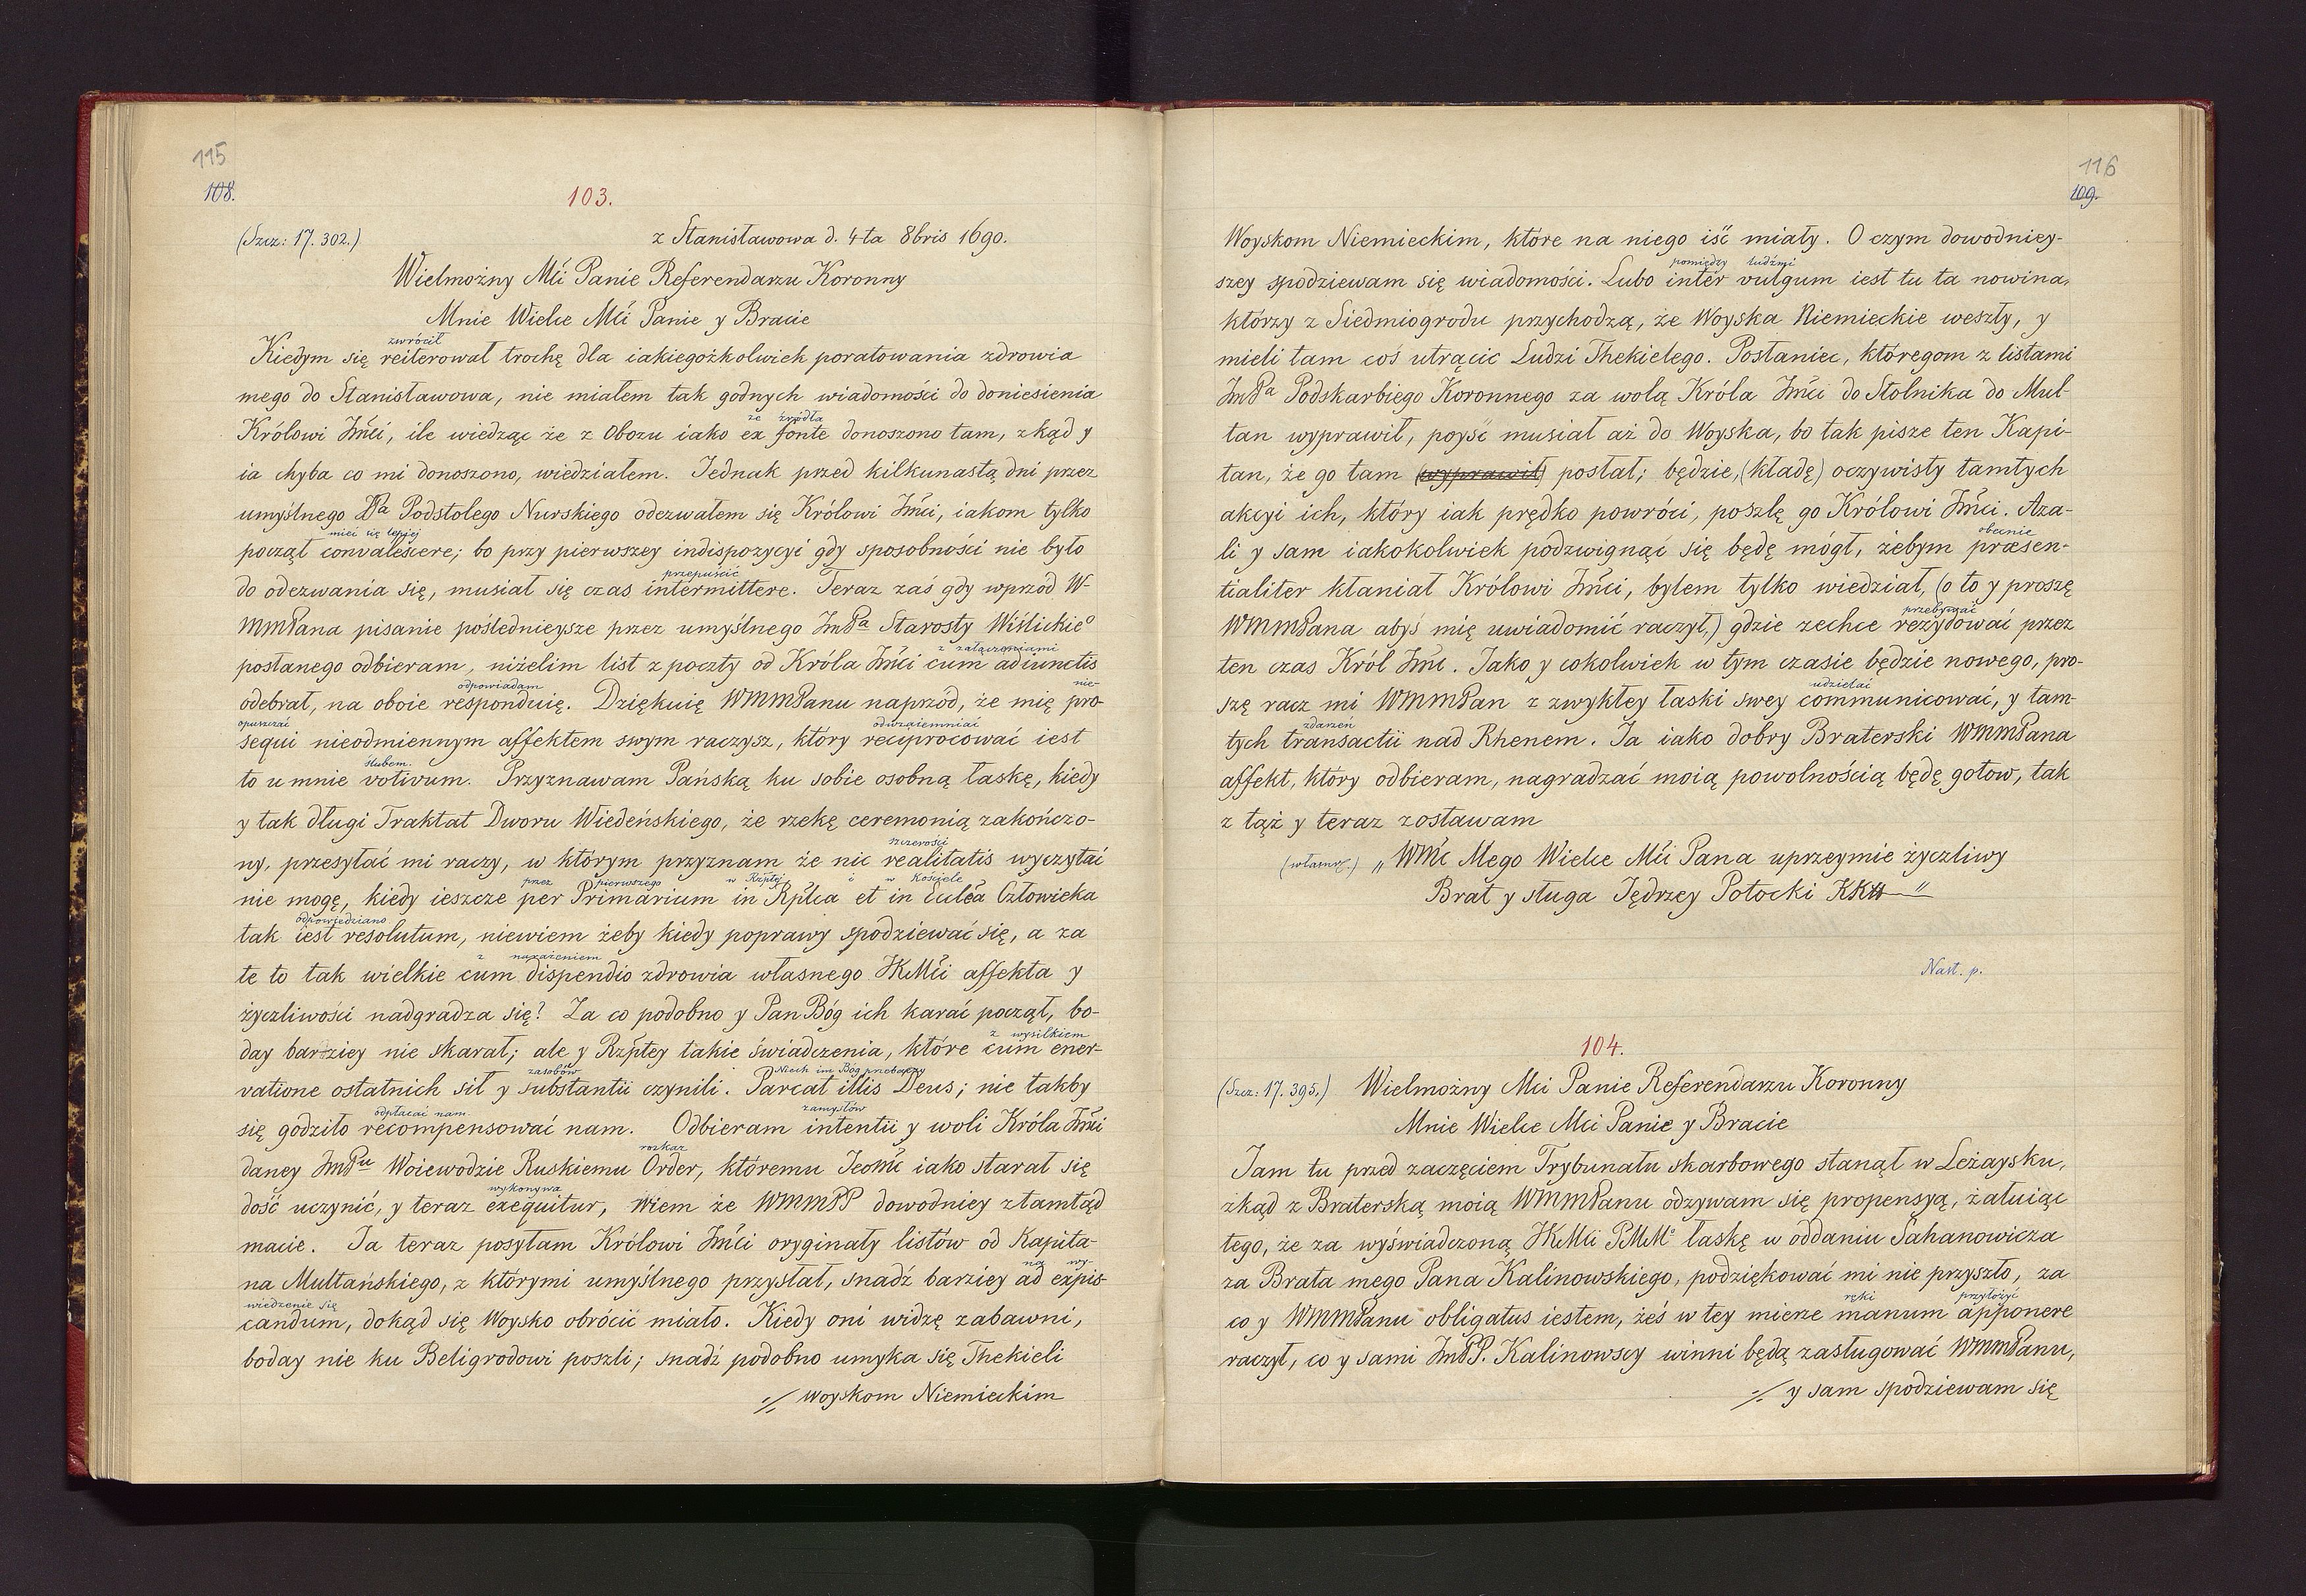 115
108.
103.
(Szcz: 17. 302.)
z Stanisławowa d. 4ta 8bris 1690.
Wielmożny Mći Panie Referendarzu Koronny
Mnie Wielce Mći Panie y Bracie
zwrócił
Kiedym się reiterował trochę dla iakiegożkolwiek poratowania zdrowia
mego do Stanisławowa, nie miałem tak godnych wiadomości do doniesienia
ze źródła
Królowi Jmći, ile wiedząc że z Obozu iako ex fonte donoszono tam, zkąd y
ia chyba co mi donoszono, wiedziałem. Jednak przed kilkunastą dni przez
umyślnego Pa Podstolego Nurskiego odezwałem się Królowi Jmći, iakom tylko
mieć się lepjej
począł convalescere; bo przy pierwszey indispozycyi gdy sposobności nie było
przepuścić
do odezwania się, musiał się czas intermittere. Teraz zaś gdy wprzód W-
MMPana pisanie poślednieysze przez umyślnego JmPa Starosty Wiślickieo
z załączeniami
posłanego odbieram, niżelim list z poczty od Króla Jmći cum adiunctis
odpowiadam nie-
odebrał, na oboie responduię. Dziękuię WMMPanu naprzód, że mię pro-
opuszczać odwzaiemniać
sequi nieodmiennym affektem swym raczysz, który reciprocować iest
ślubem.
to u mnie votivum. Przyznawam Pańską ku sobie osobną łaskę, kiedy
y tak długi Traktat Dworu Wiedeńskiego, że rzekę ceremonią zakończo-
szczerości
ny, przesyłać mi raczy, w którym przyznam że nic realitatis wyczytać
przez pierwszego w Rzptej i w Kościele
nie mogę, kiedy ieszcze per Primarium in Rplca et in Eccleã Człowieka
odpowiedziano
tak iest resolutum, niewiem żeby kiedy poprawy spodziewać się, a za
z narażeniem
te to tak wielkie cum dispendio zdrowia własnego JKMći affekta y
życzliwości nadgradza się? Za co podobno y Pan Bóg ich karać począł, bo-
z wysilkiem
day barziey nie skarał; ale y Rzptey takie świadczenia, które cum ener-
zasobów Niech im Bóg przebaczy
vatione ostatnich sił y substantii czynili. Parcat illis Deus; nie takby
odpłacać nam zamysłów
się godziło recompensować nam. Odbieram intentii y woli Króla Jmći
rozkaz
daney JmPu Woiewodzie Ruskiemu Order, któremu Jeomć iako starał się
wykonywa
dość uczynić, y teraz exequitur, wiem że WMMPP dowodniey ztamtąd
macie. Ja teraz posyłam Królowi Jmći oryginały listów od Kapita-
na wy-
na Multańskiego, z którymi umyślnego przysłał, snadź barziey ad expis-
wiedzenie się
candum, dokąd się Woysko obrócić miało. Kiedy oni widzę zabawni,
boday nie ku Beligrodowi poszli; snadź podobno umyka się Thekieli
·/· woyskom Niemieckim
116
109.
Woyskom Niemieckim, które na niego iść miały. O czym dowodniey-
pomiędzy ludźmi
szey spodziewam się wiadomości. Lubo inter vulgum iest tu ta nowina,
którzy z Siedmiogrodu przychodzą, że Woyska Niemieckie weszły, y
mieli tam coś utrącic Ludzi Thekielego. Posłaniec, któregom z listami
JmPa Podskarbiego Koronnego za wolą Króla Jmći do Stolnika do Mul-
tan wyprawił, poyść musiał aż do Woyska, bo tak pisze ten Kapi-
tan, że go tam (wyprawił) posłał; będzie, (kładę) oczywisty tamtych
akcyi ich, który iak prędko powróci, poszlę go Królowi Jmći. Aza-
obecnie
li y sam iakokolwiek podzwignąć się będę mógł, żebym præsen-
tialiter kłaniał Królowi Jmći, bylem tylko wiedział, (o to y proszę
przebywać
WMMPana abyś mię uwiadomić raczył,) gdzie zechce rezydować przez
ten czas Król Jmć. Jako y cokolwiek w tym czasie będzie nowego, pro-
udzielać
szę racz mi WMMPan z zwykłey łaski swey communicować, y tam-
zdarzeń
tych transactii nad Rhenem. Ja iako dobry Braterski WMMPana
affekt, który odbieram, nagradzać moią powolnością będę gotow, tak
z tąż y teraz zostawam
(własnor.) „WMć Mego Wielce Mći Pana uprzeymie życzliwy
Brat y sługa Jędrzey Potocki KKH ”
Nast. p.
104.
(Szcz: 17. 395.) Wielmożny Mci Panie Referendarzu Koronny
Mnie Wielce Mci Panie y Bracie
Jam tu przed zaczęciem Trybunału skarbowego stanął w Leżaysku,
zkąd z Braterską moią WMMPanu odzywam się propensyą, żałuiąc
tego, że za wyświadczoną JKMći PMMo łaskę w oddaniu Sahanowicza
za Brata mego Pana Kalinowskiego, podziękować mi nie przyszło, za
ręki przyłożyć
co y WMMPanu obligatus iestem, żeś w tey mierze manum apponere
raczył, co y sami JmPP. Kalinowscy winni będą zasługować WMMPanu,
·/· y sam spodziewam się